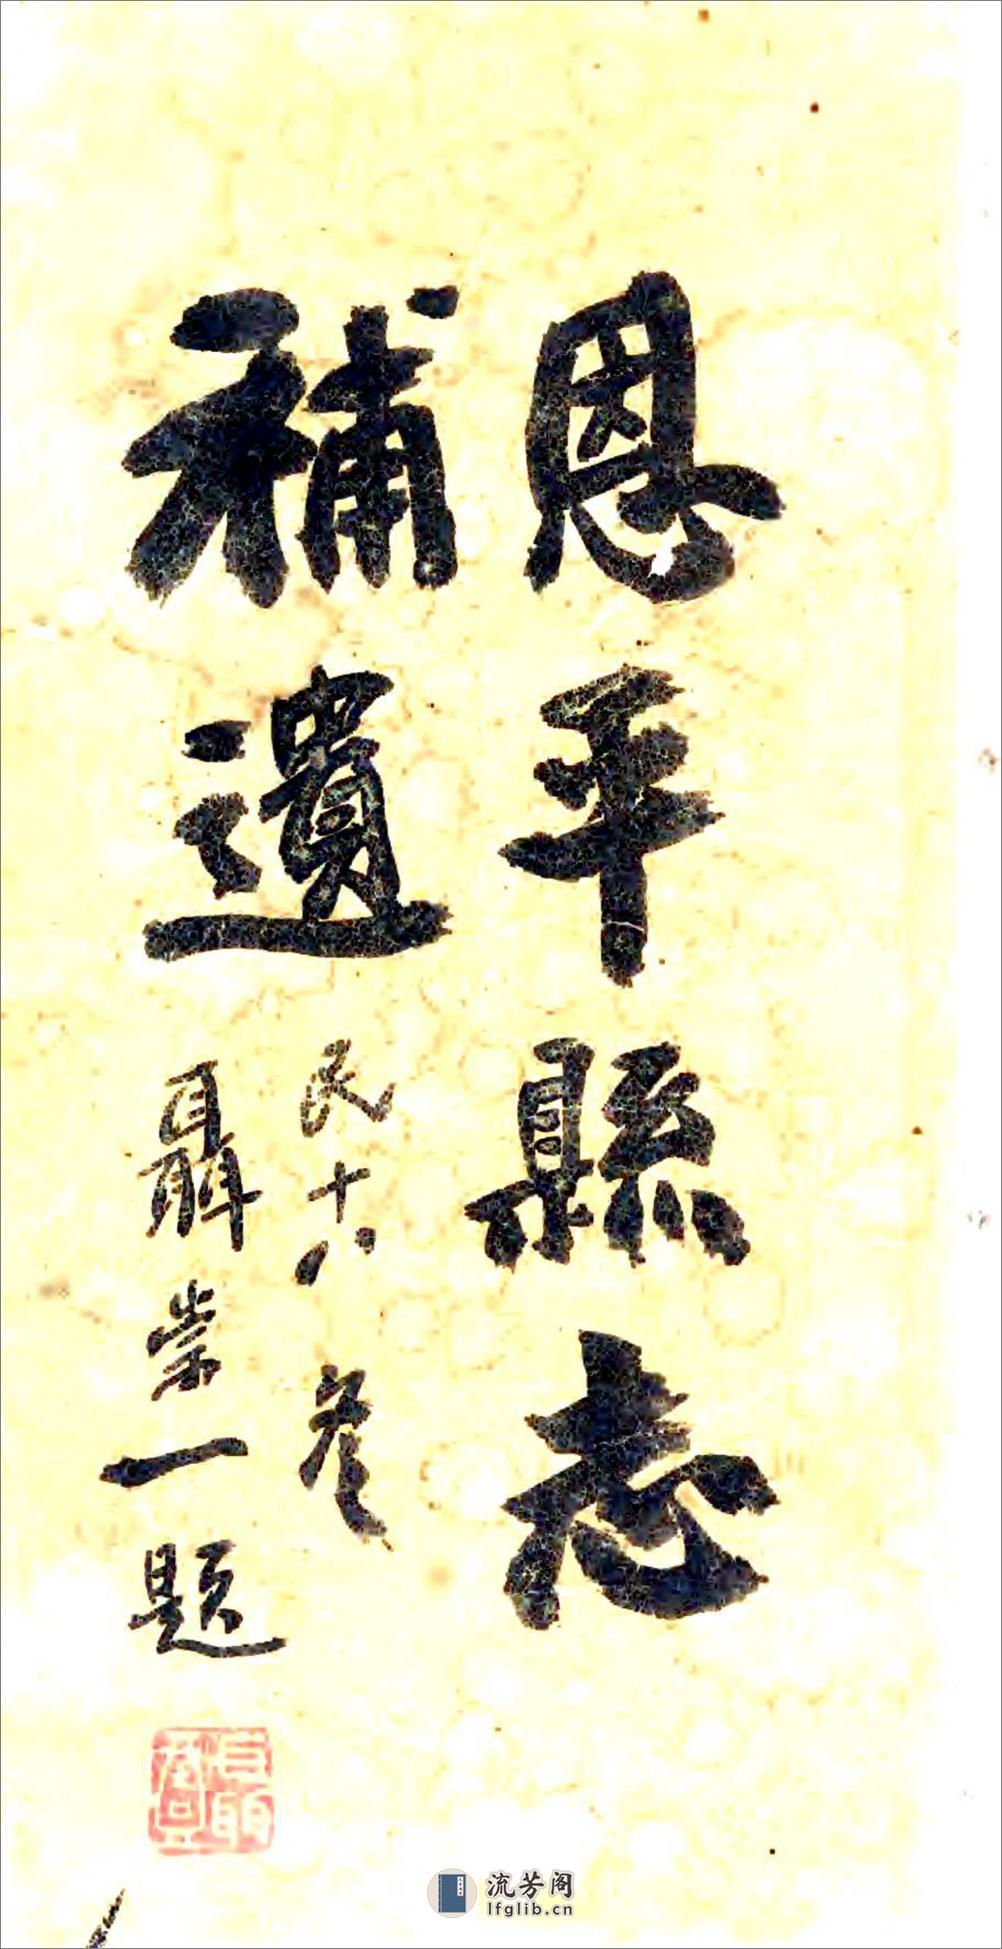 恩平縣志
補遺
民十八冬
聶崇一題
流芳阁
lfglib.cn